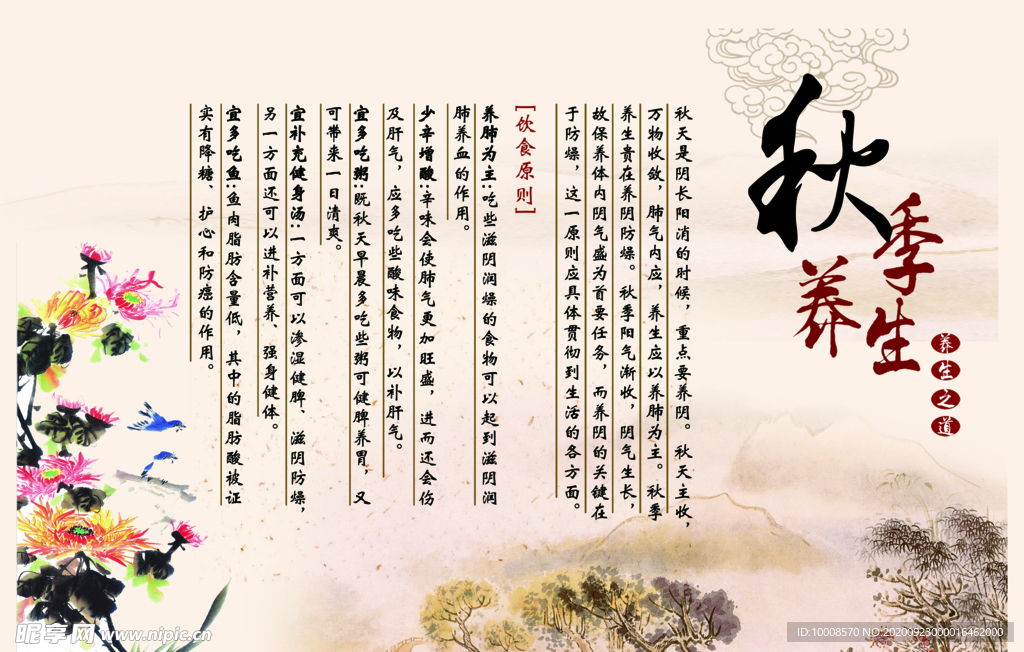 秋季养生
养生之道
秋天是阴长阳消的时候，重点要养阴。秋天主收，
万物收敛，肺气内应，养生应以养肺为主。秋季
养生贵在养阴防燥。秋季阳气渐收，阴气生长，
故保养体内阴气盛为首要任务，而养阴的关键在
于防燥，这一原则应具体贯彻到生活的各方面。
[饮食原则]
养肺为主:吃些滋阴润燥的食物可以起到滋阴润
肺养血的作用。
少辛增酸:辛味会使肺气更加旺盛，进而还会伤
及肝气，应多吃些酸味食物，以补肝气。
宜多吃粥:既秋天早晨多吃些粥可健脾养胃，又
可带来一日清爽。
宜补充健身汤:一方面可以渗湿健脾、滋阴防燥，
另一方面还可以进补营养、强身健体。
宜多吃鱼:鱼肉脂肪含量低，其中的脂肪酸被证
实有降糖、护心和防癌的作用。
昵享网 www.nipic.cn
ID:10008570 NO:20200923000016462000